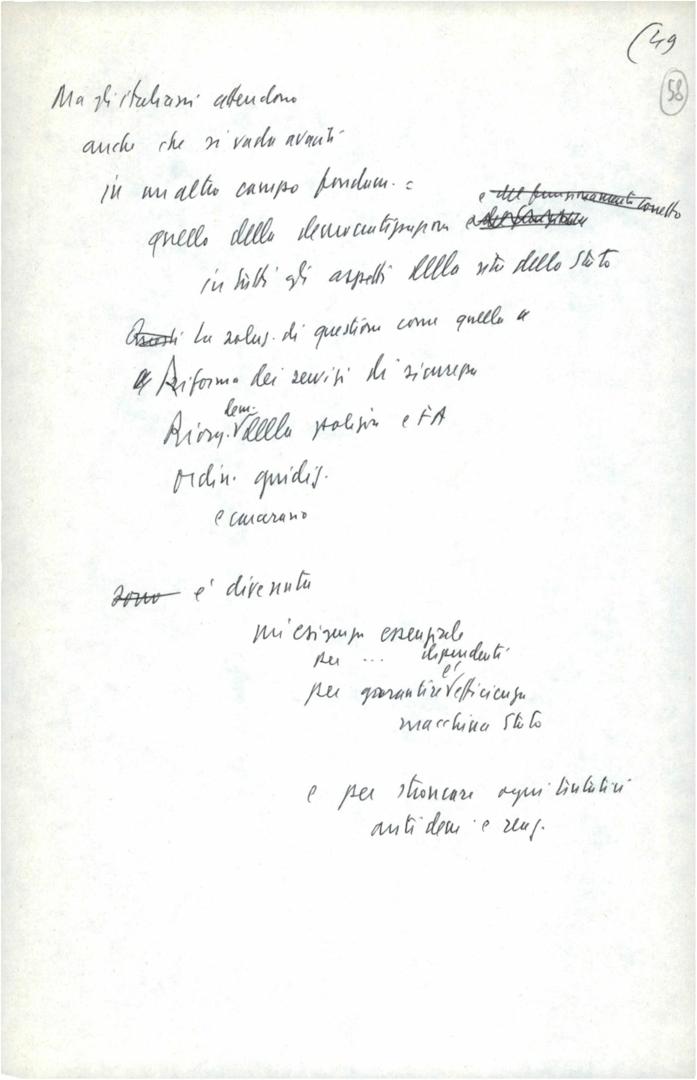 (49
58
Ma gli italiani attendono
anche che si vada avanti
in un altro campo fondam. :
e del funzionamento corretto
quello della democratizzazione
in tutti gli aspetti della vita dello Stato
La soluz. di questioni come quella
Riforma dei servizi di sicurezza
dem.
Riorg. della polizia e FA
ordin. giudiz.
e carcerario
sono e' divenuta
un'esigenza essenziale
per ... dipendenti
e'
per garantire efficienza
macchina Stato
e per stroncare ogni tentativi
anti dem. e reaz.